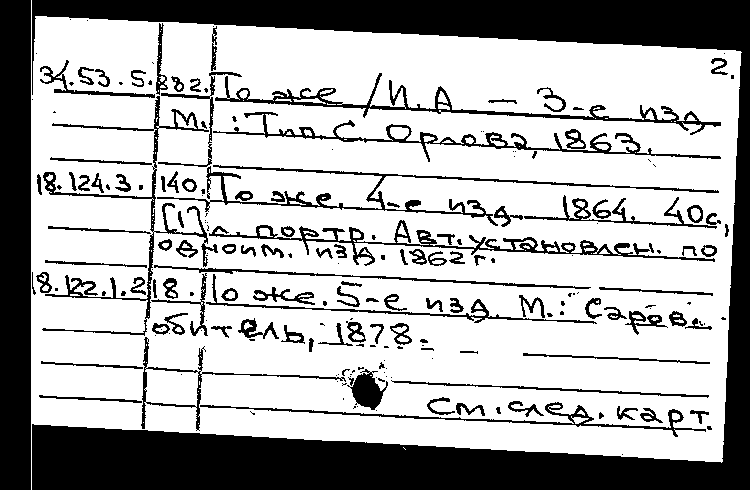 2.
34.53.5.882. То же /И.А – 3-е изд
М. : Тип. С. Орлова, 1863.
18.124.3.140. То же. 4-е изд. 1864. 40с.,
[1] л. портр. Авт. установлен. по
одноим. изд. 1862 г.
18.122.1.218. То же. 5-е изд. М.: Саров.
обитель, 1878.
См. след. карт.